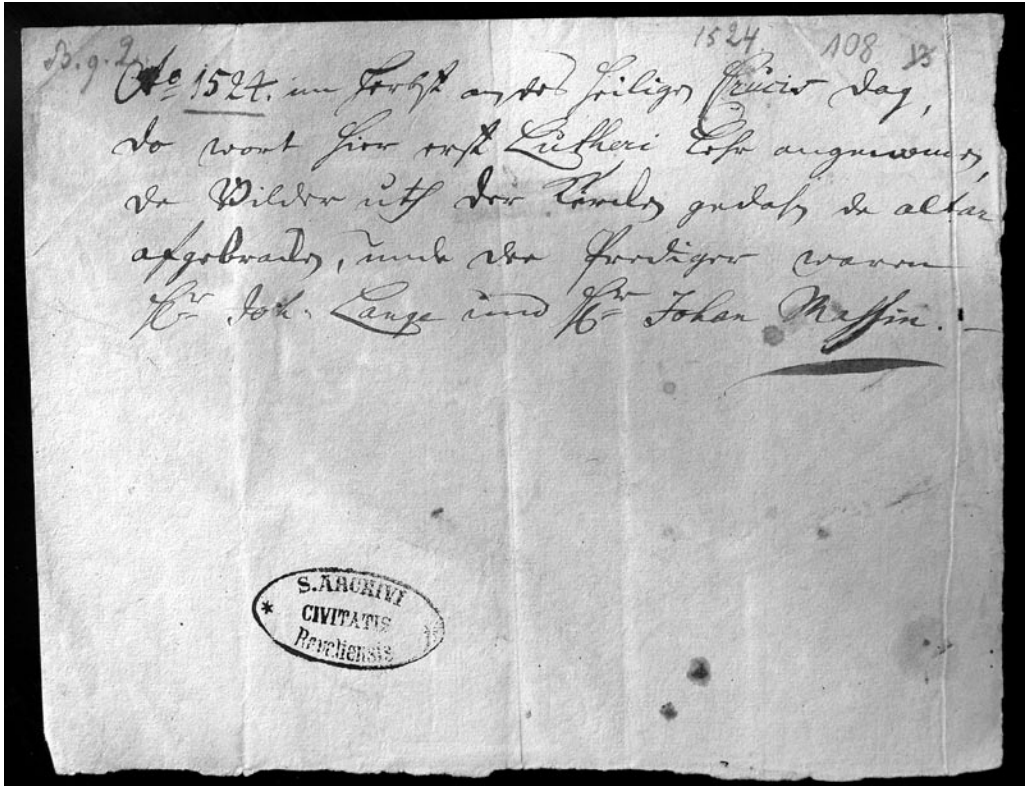 B. g. 2.
1524.
108
13
Ao 1524. im Herbst an des heiligen Crucis dag,
do wort hier erst Lutheri Lehr angenomen,
de Bilder uth der Kercken gedahn de altar
afgebraken, unde der Prediger waren
Hr Joh. Lange und Hr Johan Massin.
S. ARCHIVI
CIVITATIS
Revaliensis